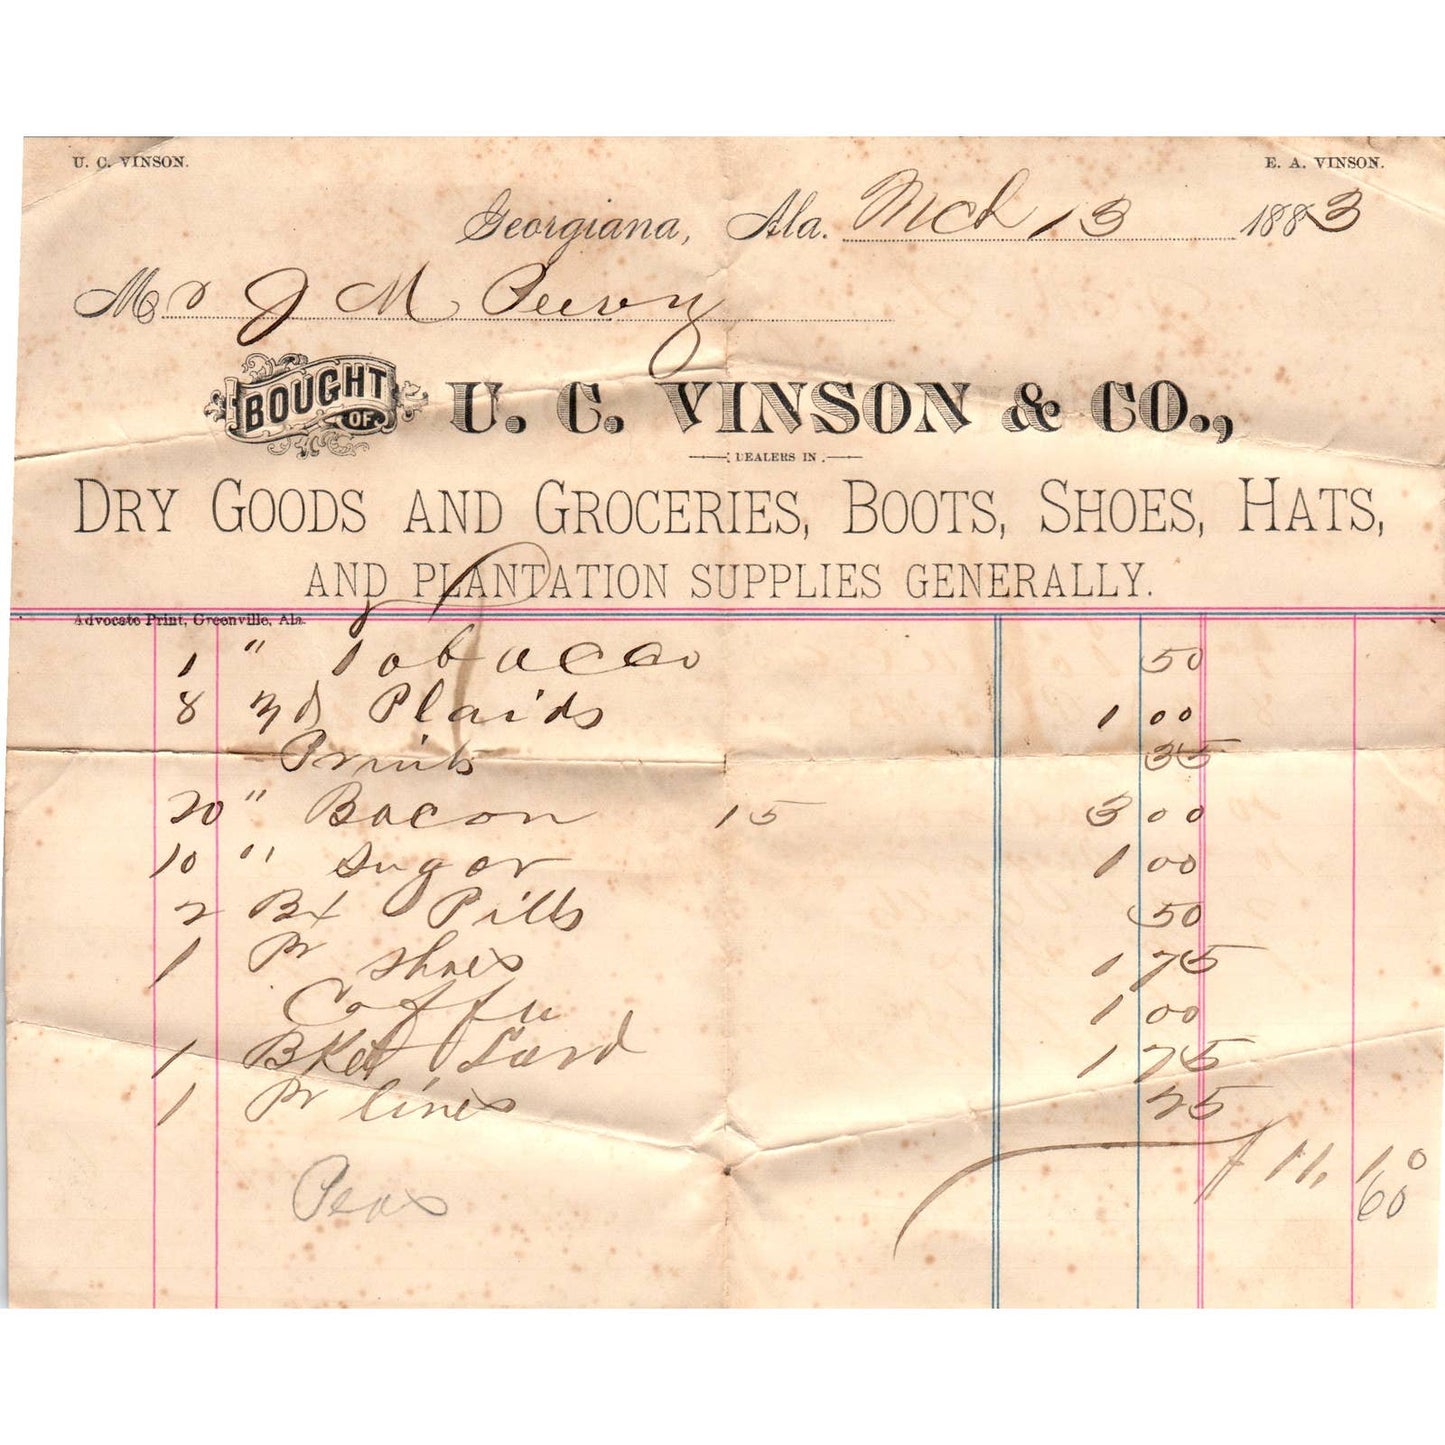 U. C. VINSON. E. A. VINSON.
Georgiana, Ala. Mch 13 1883
Mr J M Peevy
BOUGHT OF U. C. VINSON & CO.,
DEALERS IN
DRY GOODS AND GROCERIES, BOOTS, SHOES, HATS,
AND PLANTATION SUPPLIES GENERALLY.
Advocate Print, Greenville, Ala.
1 " Tobacco 50
8 yds Plaids 1 00
Prints 35
20 " Bacon 15 3 00
10 " Sugar 1 00
2 Bx Pills 50
1 Pr Shoes 1 75
Coffee 1 00
1 Bket Lard 1 75
1 Pr lines 25
11.10
Peas 60